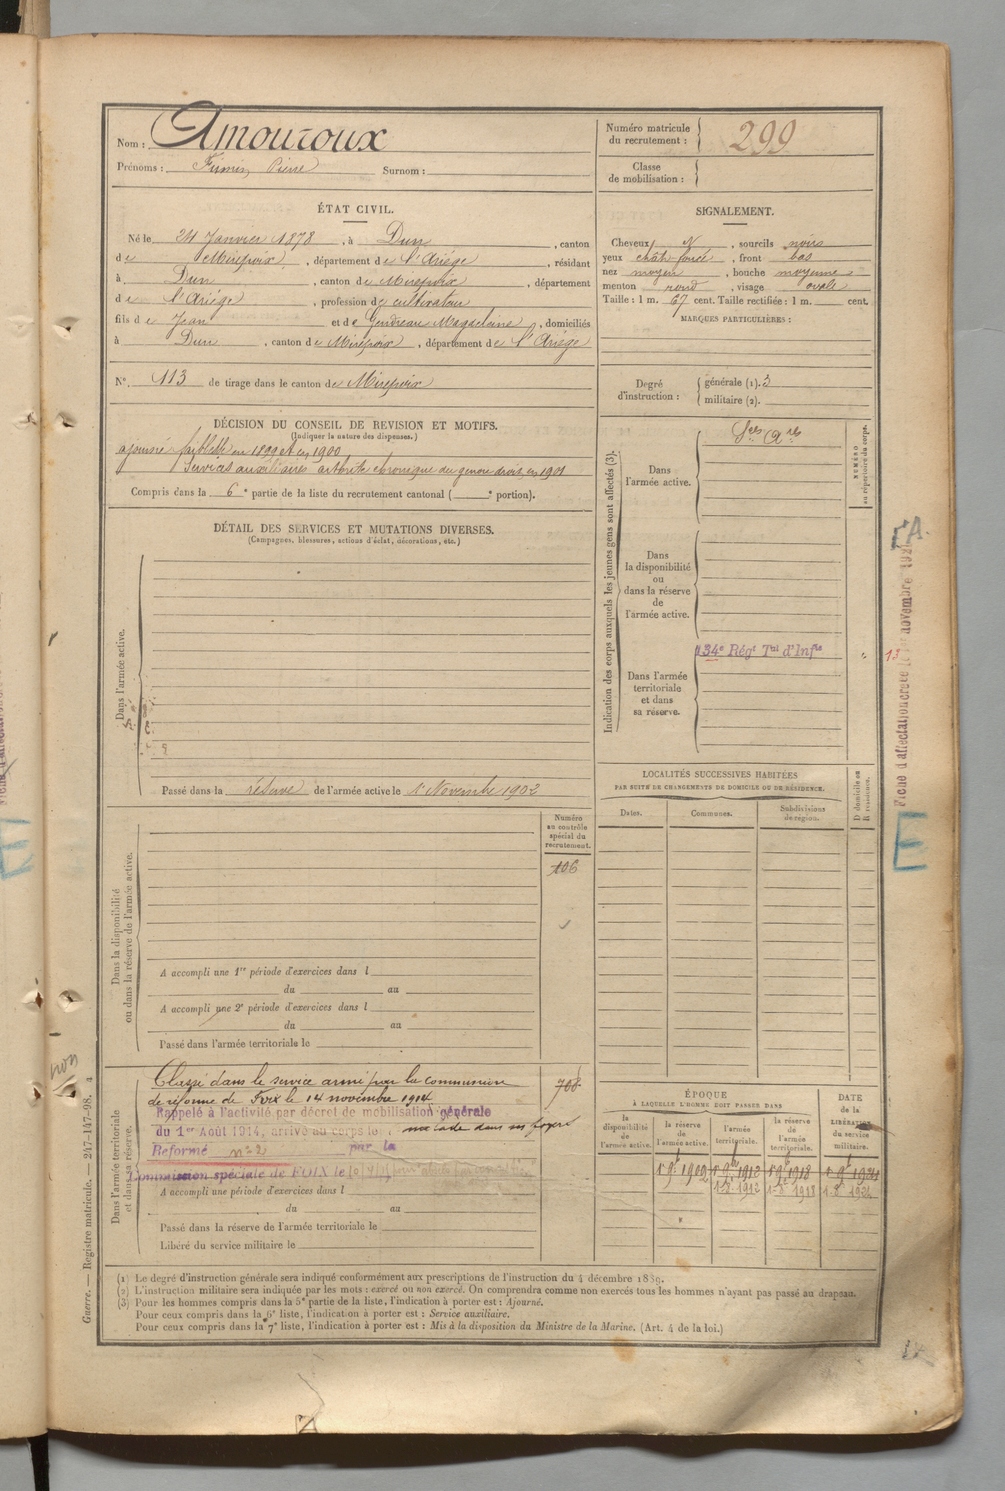 Nom : Amouroux
Prénoms : Firmin Pierre Surnom :
Numéro matricule du recrutement : 299
Classe de mobilisation :
ÉTAT CIVIL.
Né le 24 Janvier 1878, à Dun, canton
de Mirepoix, département de l'Ariège, résidant
à Dun, canton de Mirepoix, département
de l'Ariège, profession de cultivateur
fils de Jean et de Gendreau Magdeleine, domiciliés
à Dun, canton de Mirepoix, département de l'Ariège
N°. 113 de tirage dans le canton de Mirepoix
SIGNALEMENT.
Cheveux N, sourcils noirs
yeux chât. foncé, front bas
nez moyen, bouche moyenne
menton rond, visage ovale
Taille : 1 m. 67 cent. Taille rectifiée : 1 m. cent.
MARQUES PARTICULIÈRES :
Degré d'instruction : générale (1). 3
militaire (2).
DÉCISION DU CONSEIL DE REVISION ET MOTIFS.
(Indiquer la nature des dispenses.)
ajourné faiblesse en 1899 et en 1900
Services auxiliaires arthrite chronique du genou droit, en 1901
Compris dans la 6e partie de la liste du recrutement cantonal ( e portion).
DÉTAIL DES SERVICES ET MUTATIONS DIVERSES.
(Campagnes, blessures, actions d'éclat, décorations, etc.)
Dans l'armée active.
Passé dans la réserve de l'armée active le 1er Novembre 1902
Indication des corps auxquels les jeunes gens sont affectés (3).
Dans l'armée active.
Ces Ares
NUMÉRO au répertoire du corps.
Dans la disponibilité ou dans la réserve de l'armée active.
Dans l'armée territoriale et dans sa réserve.
134e Régt Tal d'Infie
Fiche d'affectation créée novembre 192
13
E
LOCALITÉS SUCCESSIVES HABITÉES
PAR SUITE DE CHANGEMENTS DE DOMICILE OU DE RÉSIDENCE.
Dates.
Communes.
Subdivisions de région.
D domicile ou R résidence.
Dans la disponibilité ou dans la réserve de l'armée active.
Numéro au contrôle spécial du recrutement.
106
A accompli une 1re période d'exercices dans l
du au
A accompli une 2e période d'exercices dans l
du au
Passé dans l'armée territoriale le
non
Dans l'armée territoriale et dans sa réserve.
Classé dans le service armé par la commission
de réforme de Foix le 14 novembre 1914
708
Rappelé à l'activité par décret de mobilisation générale
du 1er Août 1914, arrivé au corps le
dans ses foyers
Réformé n° 2 par la
Commission spéciale de FOIX le
A accompli une période d'exercices dans l
du au
Passé dans la réserve de l'armée territoriale le
Libéré du service militaire le
ÉPOQUE
À LAQUELLE L'HOMME DOIT PASSER DANS
la disponibilité de l'armée active.
la réserve de l'armée active.
l'armée territoriale.
la réserve de l'armée territoriale.
DATE de la LIBÉRATION du service militaire.
1 9bre 1902
1 9bre 1912
1 9bre 1918
1 9bre 1924
1-8-1912
1-8-1918
1-8-1924
(1) Le degré d'instruction générale sera indiqué conformément aux prescriptions de l'instruction du 4 décembre 1889.
(2) L'instruction militaire sera indiquée par les mots : exercé ou non exercé. On comprendra comme non exercés tous les hommes n'ayant pas passé au drapeau.
(3) Pour les hommes compris dans la 5e partie de la liste, l'indication à porter est : Ajourné.
Pour ceux compris dans la 6e liste, l'indication à porter est : Service auxiliaire.
Pour ceux compris dans la 7e liste, l'indication à porter est : Mis à la disposition du Ministre de la Marine. (Art. 4 de la loi.)
Guerre. — Registre matricule. — 247-147-98.